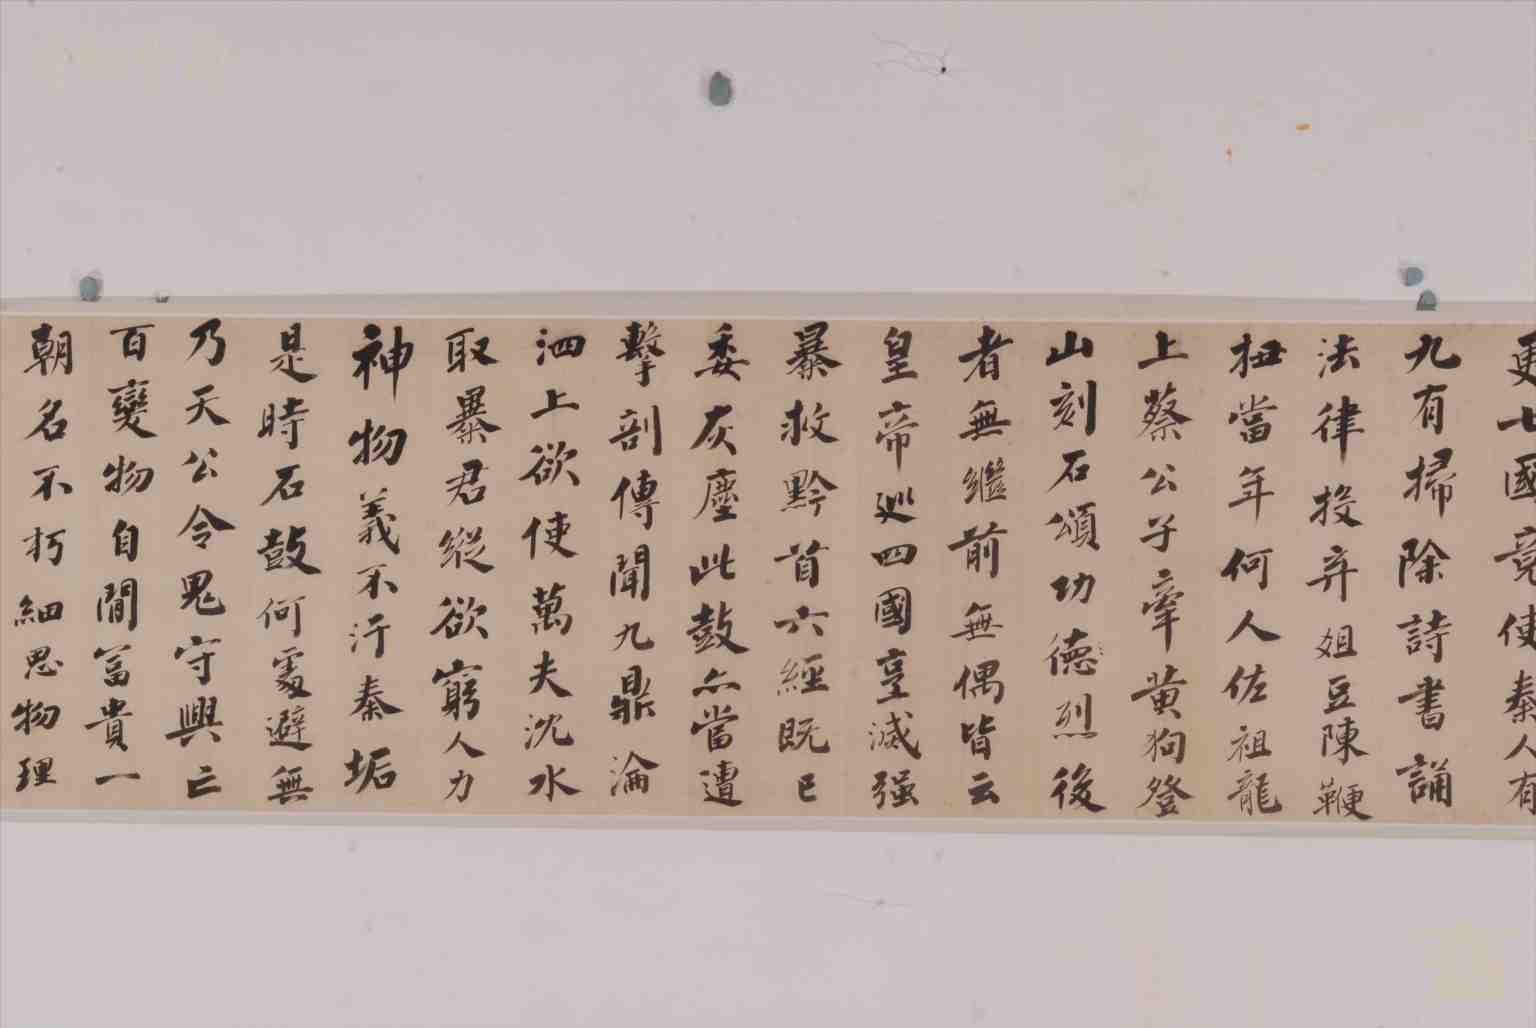 更七國竟使秦人有
九有掃除詩書誦
法律投弃俎豆陳鞭
杻當年何人佐祖龍
上蔡公子牽黃狗登
山刻石頌功德烈後
者無繼前無偶皆云
皇帝巡四國烹滅强
暴救黔首六經既已
委灰塵此鼓亦當遭
擊剖傳聞九鼎淪
泗上欲使萬夫沈水
取暴君縱欲窮人力
神物義不汙秦垢
是時石鼓何處避無
乃天公令鬼守興亡
百變物自閒富貴一
朝名不朽細思物理